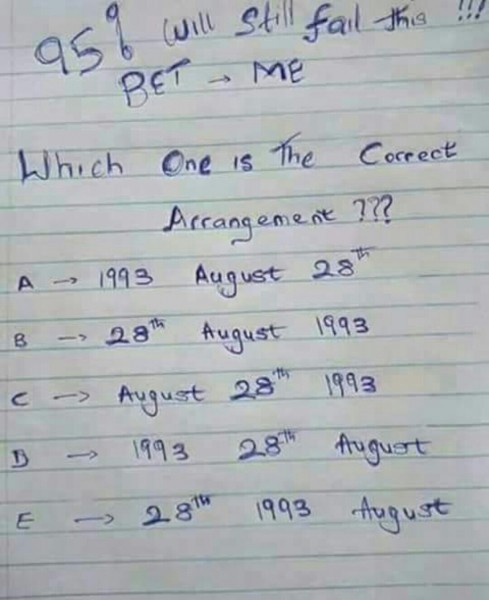 95% Will Still fail this !!!
BET → ME
Which One is The Correct
Arrangement ???
A → 1993 August 28th
B → 28th August 1993
C → August 28th 1993
D → 1993 28th August
E → 28th 1993 August